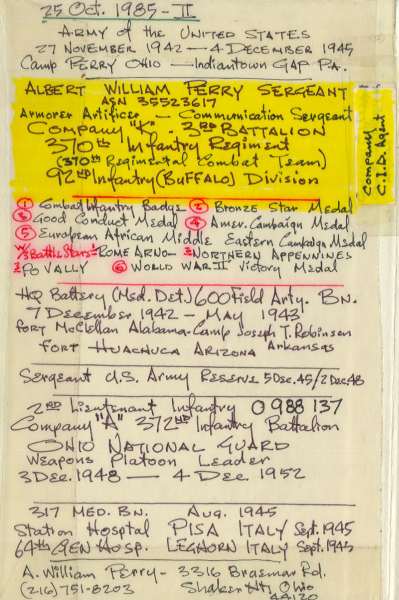 25 Oct. 1985-II
ARMY of the UNITED STATES
27 NOVEMBER 1942 — 4 DECEMBER 1945
Camp PERRY OHIO — Indiantown GAP PA.
ALBERT WILLIAM PERRY SERGEANT
ASN 35523617
Armorer Artificer — Communication Sergeant
Company "K" - 3RD BATTALION
370th Infantry Regiment
(370th Regimental Combat Team)
92nd Infantry (BuFFALO) Division
Company
C.I.D. Agent
① Combat Infantry Badge ② Bronze Star Medal
③ Good Conduct Medal ④ Amer. Campaign Medal
⑤ European African Middle Eastern Campaign Medal
W/3 Battle Stars 1 ROME ARNO - 2 NORTHERN APPENNINES
3 PO VALLY ⑥ WORLD WAR II Victory Medal
HQ Battery (Med. Det.) 600 Field Arty. BN.
7 December 1942 — MAY 1943
FORT McClellan Alabama - Camp Joseph T. Robinson
Arkansas
FORT HUACHUCA ARIZONA
Sergeant U.S. Army RESERVE 5 Dec. 45/2 Dec 48
2nd Lieutenant Infantry O 988 137
Company "A" 372nd Infantry Battalion
OHIO NATIONAL GUARD
Weapons Platoon Leader
3 Dec. 1948 — 4 Dec. 1952
317 MED. BN. Aug. 1945
Station Hospital PISA ITALY Sept. 1945
64th GEN HOSP. LEGHORN ITALY Sept. 1945
A. William Perry - 3316 Braemar Rd.
(216) 751-8203 Shaker Hts, Ohio
44120